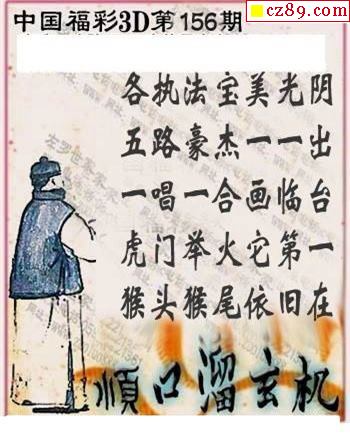 cz89.com
中国福彩3D第156期
各执法宝美光阴
五路豪杰一一出
一唱一合画临台
虎门举火它第一
猴头猴尾依旧在
顺口溜玄机